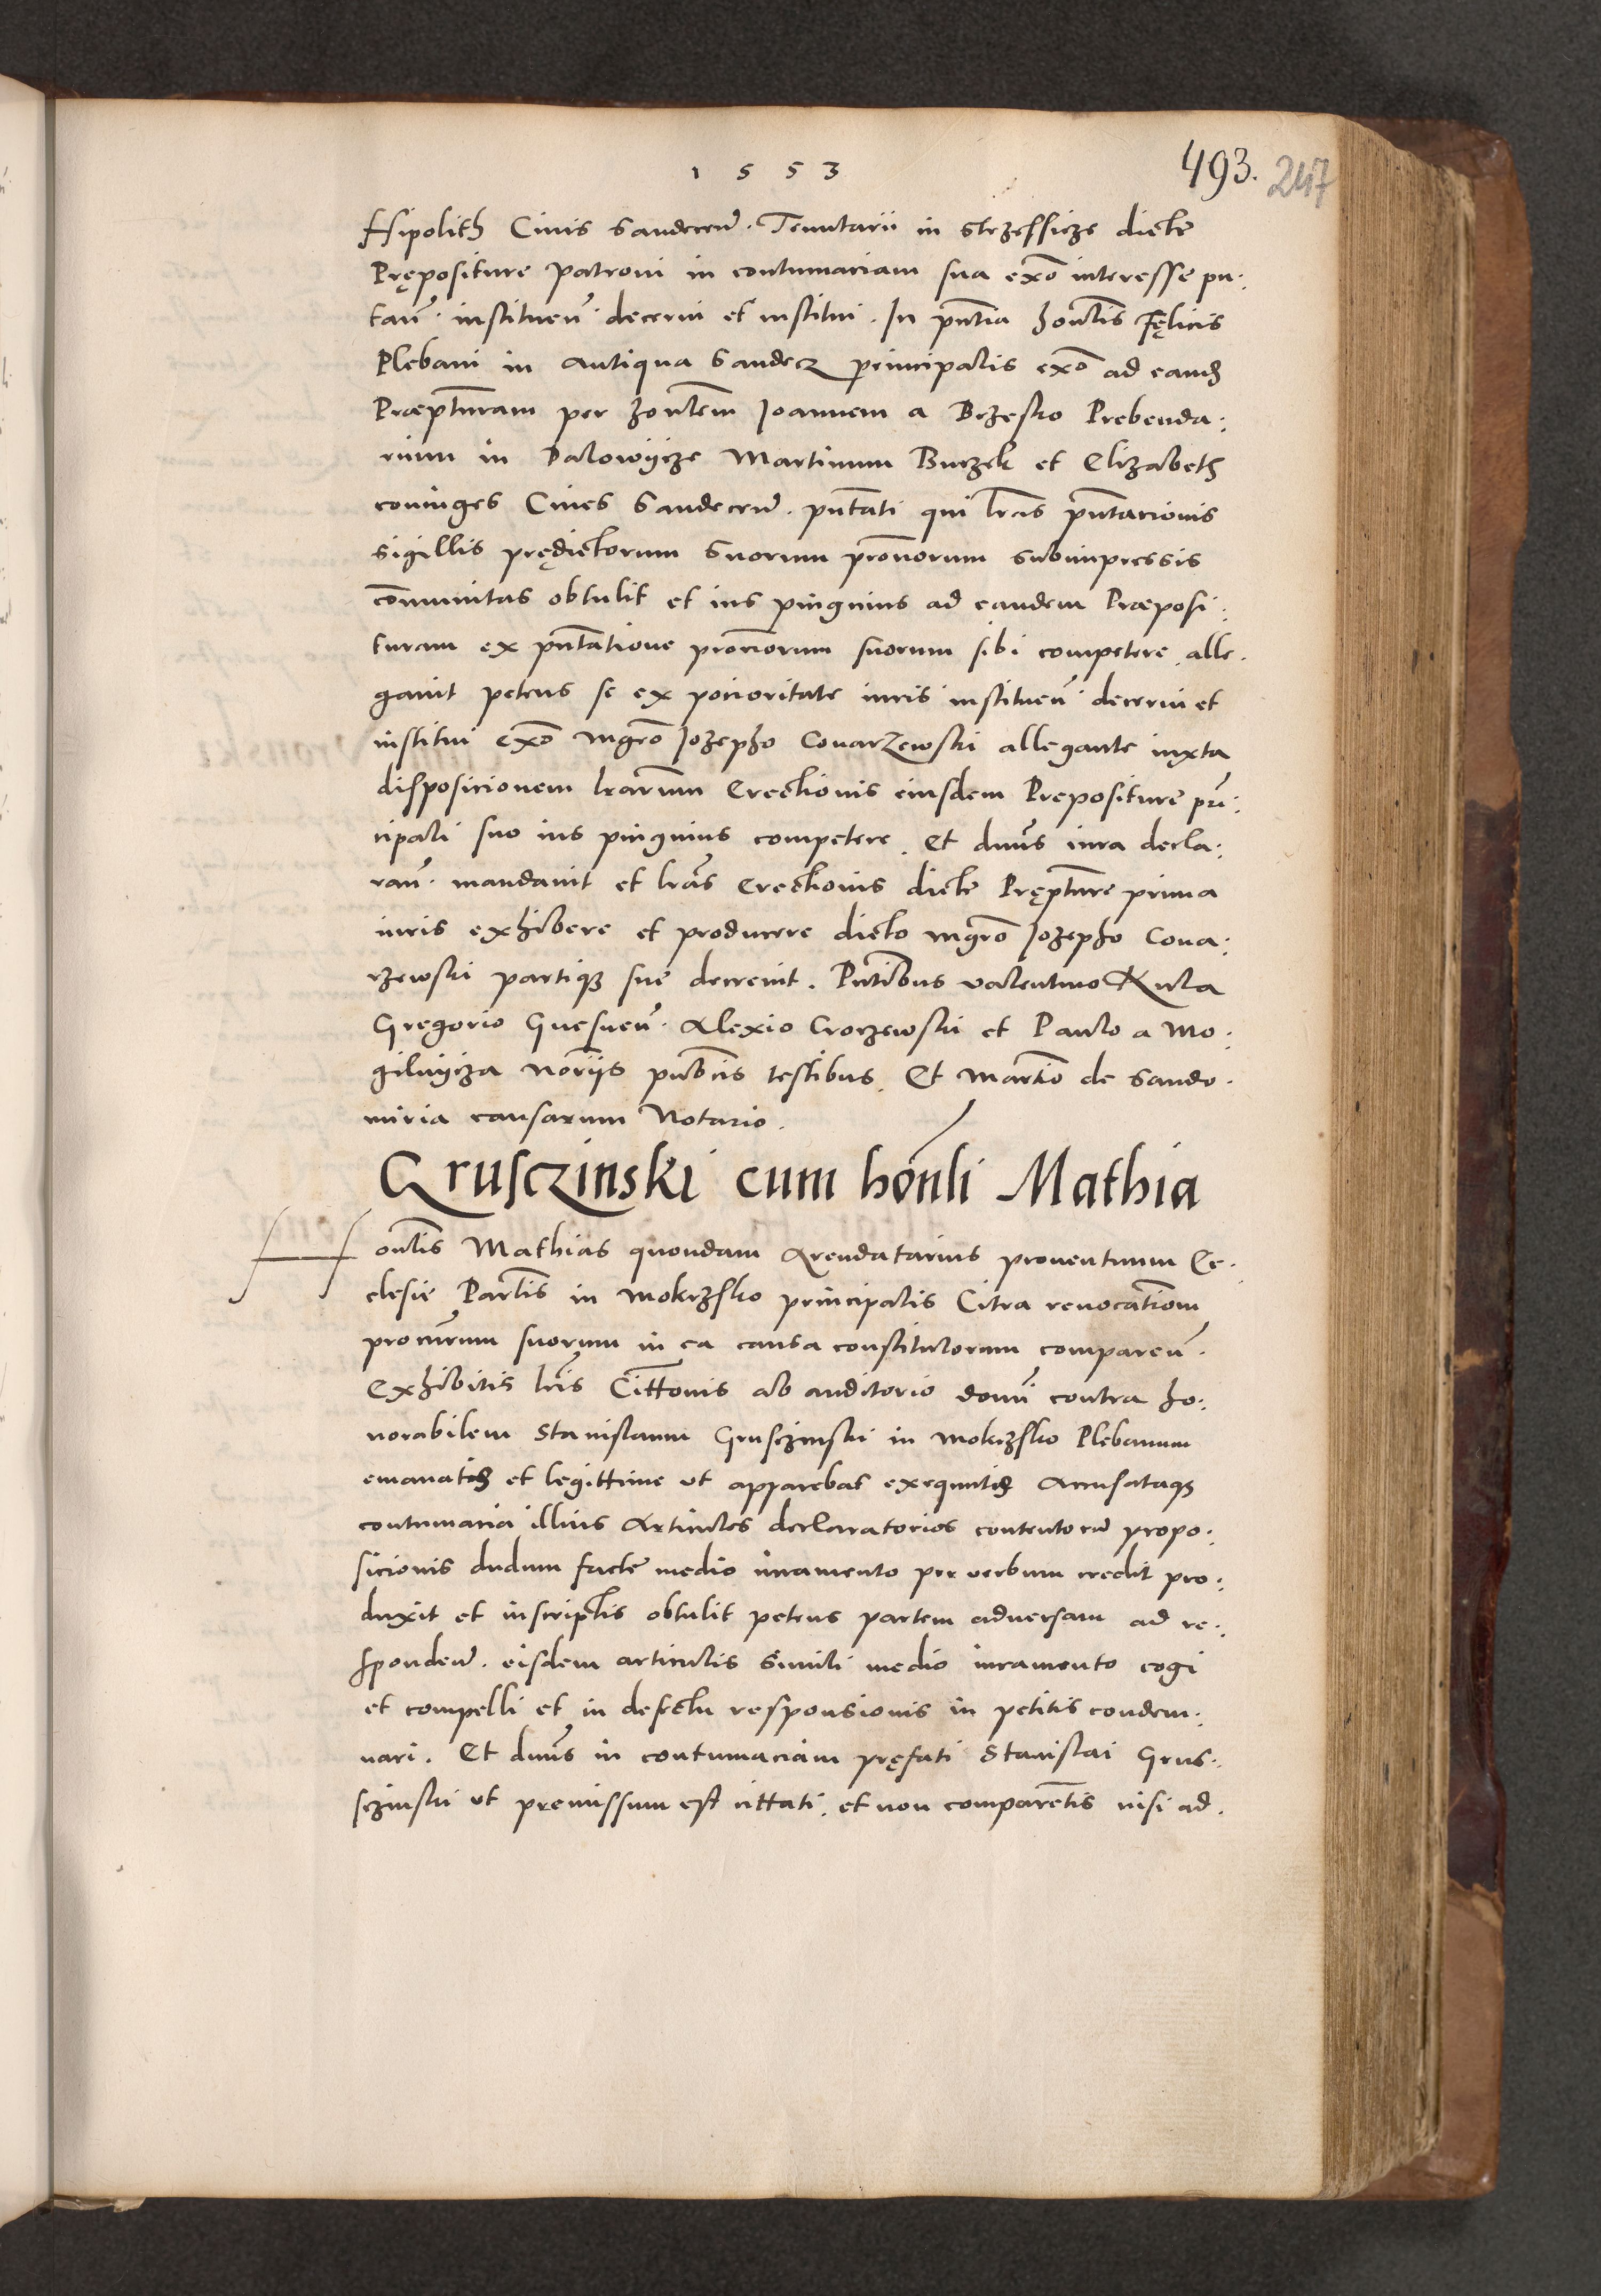 1553
493. 247
Hipolith Civis Sandecen̄. Tenutarii in Strzessicze dicte
Prępositure patroni in contumaciam sua exo͞ interesse pu:
tan̄. instituen̄. decerni et institui. In pn̄tia hon̄lis Fęlicis
Plebani in Antiqua Sandecz principalis exo͞ ad eand̄
Præpt̄uram per hon̄lem Joannem a Brzesko Prebenda:
rium in Dalowÿcze Martinum Burzek et Elizabeth
coniuges Cives Sandecen̄. pn̄tati qui lr̄as pn̄tacionis
sigillis prędictorum suorum pr̄onorum subimpressis
com̄unitas obtulit et ius pinguius ad eandem Præposi:
turam ex pn̄tatione pr̄onorum suorum sibi competere alle.
gavit petens se ex potioritate iuris instituen̄ decerni et
institui exo͞ mgr̄o Jozepho Covarzewski allegante iuxta
disposicionem lr̄arum Erectionis eiusdem Prepositure prī:
cipali suo ius pinguius competere. Et dn̄us iura decla:
ran̄. mandavit et lr̄as Erectionis dicte Prępt̄ure prima
iuris exhibere et producere dicto mgr̄o Jozepho Cova:
rzewski partiq̃ sue decrevit. Pn̄tibus valentino Kula
Gregorio Gnesnen̄. Alexio Croczewski et Paulo a Mo:
gilnÿcza Nor̄ijs pub͞cis testibus. Et Mart͞io de Sando.
miria causarum Notario.
Grusczinski cum hon̄li Mathia
Hon̄lis Mathias quondam Arendatarius proventuum Ec.
clesie Part͞is in Mokrzsko principalis Citra revocat͞iom
procur̄um suorum in ea causa constitutorum comparen̄.
Exhibitis lr̄is Citt͞onis ab auditorio domī contra ho:
norabilem Stanislaum Grusczinski in Mokrzsko Plebanum
emanatis et legittime ut apparebat exequutis Accusataq̃
contumacia illius Articulos declaratorios contentorū propo:
sicionis dudum facte medio iuramento per verbum credit pro:
duxit et inscriptis obtulit petens partem adversam ad re:
sponden̄. eisdem articulis simili medio iuramento cogi
et compelli et in defectu responsionis in petitis condem:
nari. Et dn̄us in contumaciam pręfati Stanislai Grus:
sczinski ut premissum est cittati, et non comparen̄tis nisi ad.